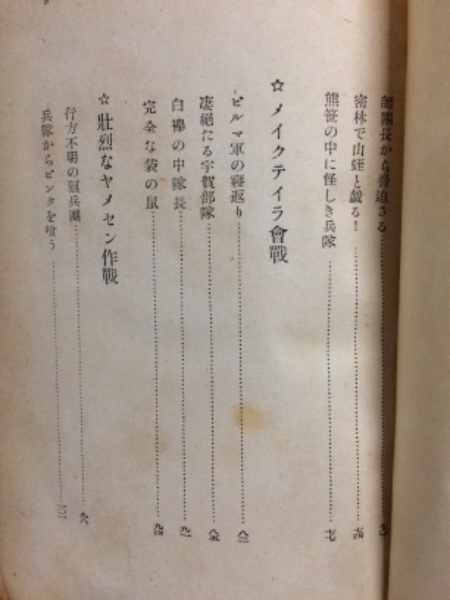 師團長から脅迫さる
密林で山蛭と戯る！……七四
熊笹の中に怪しき兵隊……七七
☆メイクテイラ會戰
ビルマ軍の寢返り……八二
凄絶たる宇賀部隊……八五
白襷の中隊長……九一
完全な袋の鼠……九四
☆壯烈なヤメセン作戰
行方不明の烈兵團……九八
兵隊からビンタを喰う……一〇一